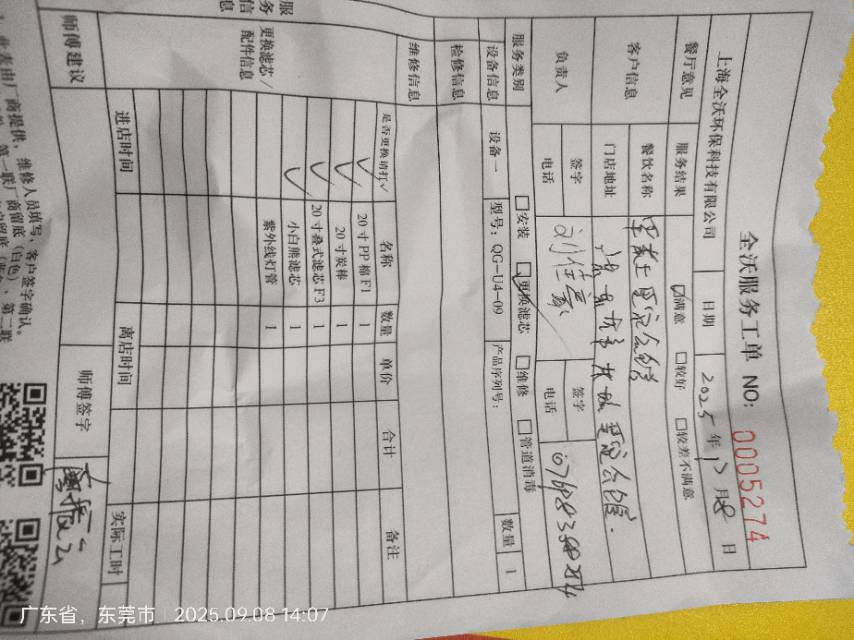 全沃服务工单 NO: 0005274
上海全沃环保科技有限公司 日期 2025年 月8日
餐厅意见 服务结果 ☑满意 □较好 □较差不满意
客户信息 餐饮名称
门店地址
负责人 签字 签字
电话 电话
服务类别 □安装 ☑更换滤芯 □维修 □管道消毒
设备信息 设备一 型号：QG-U4-09 产品序列号： 数量 1
检修信息
维修信息
服务信息
更换滤芯/配件信息 是否更换请打√ 名称 数量 单价 合计 备注
✓ 20寸PP棉F1 1
✓ 20寸炭棒 1
✓ 20寸叠式滤芯F3 1
✓ 小白熊滤芯 1
紫外线灯管 1
进店时间 离店时间 实际工时
师傅建议 师傅签字
此表由厂商提供，维修人员填写，客户签字确认。
第一联厂商留底（白色），第二联
广东省，东莞市 | 2025.09.08 14:07